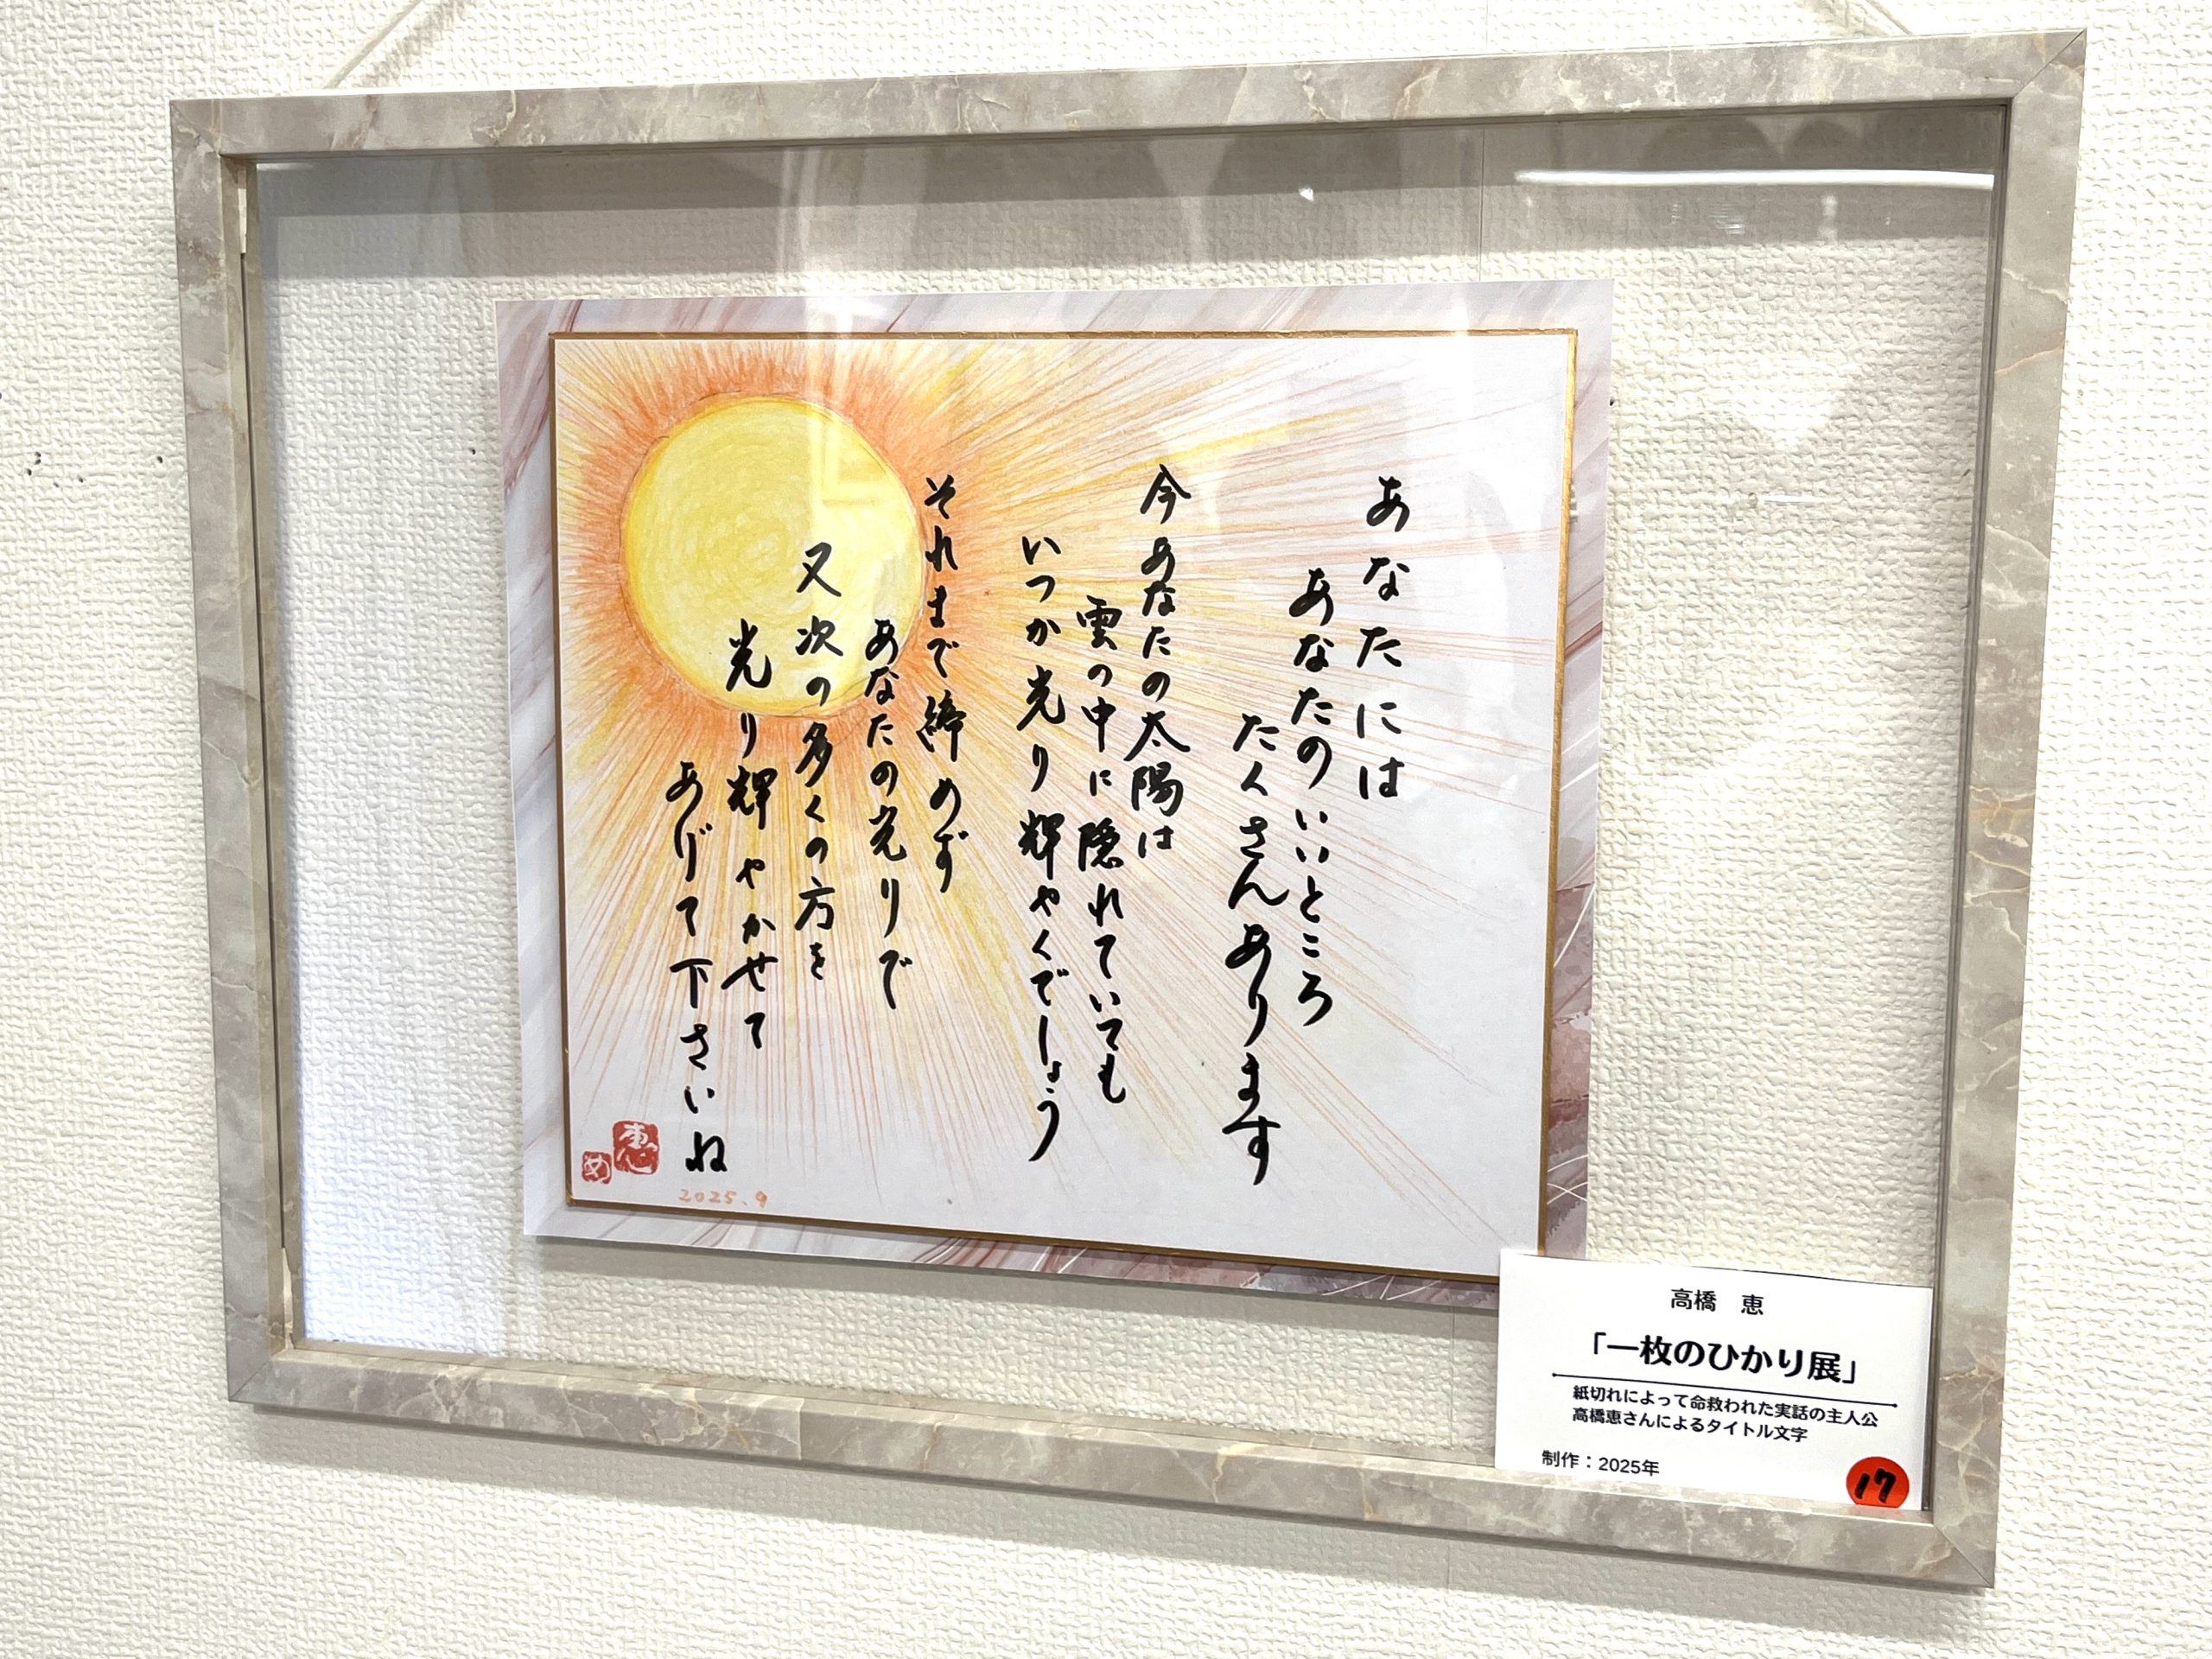 あなたには
あなたのいいところ
たくさんあります
今あなたの太陽は
雲の中に隠れていても
いつか光り輝やくでしょう
それまで締めず
あなたの光りで
又次の多くの方を
光り輝やかせて
あげて下さいね
恵
め
2025.9
高橋 恵
「一枚のひかり展」
紙切れによって命救われた実話の主人公
高橋恵さんによるタイトル文字
制作：2025年
17